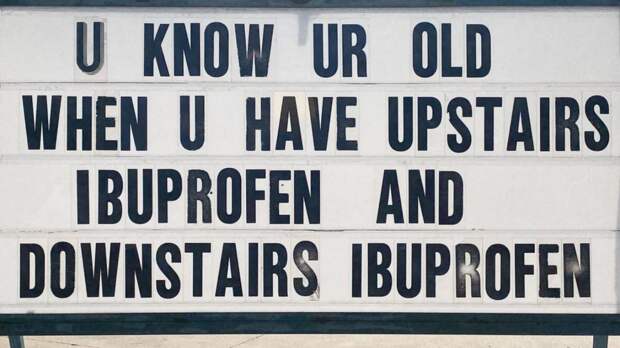 U KNOW UR OLD
WHEN U HAVE UPSTAIRS
IBUPROFEN AND
DOWNSTAIRS IBUPROFEN